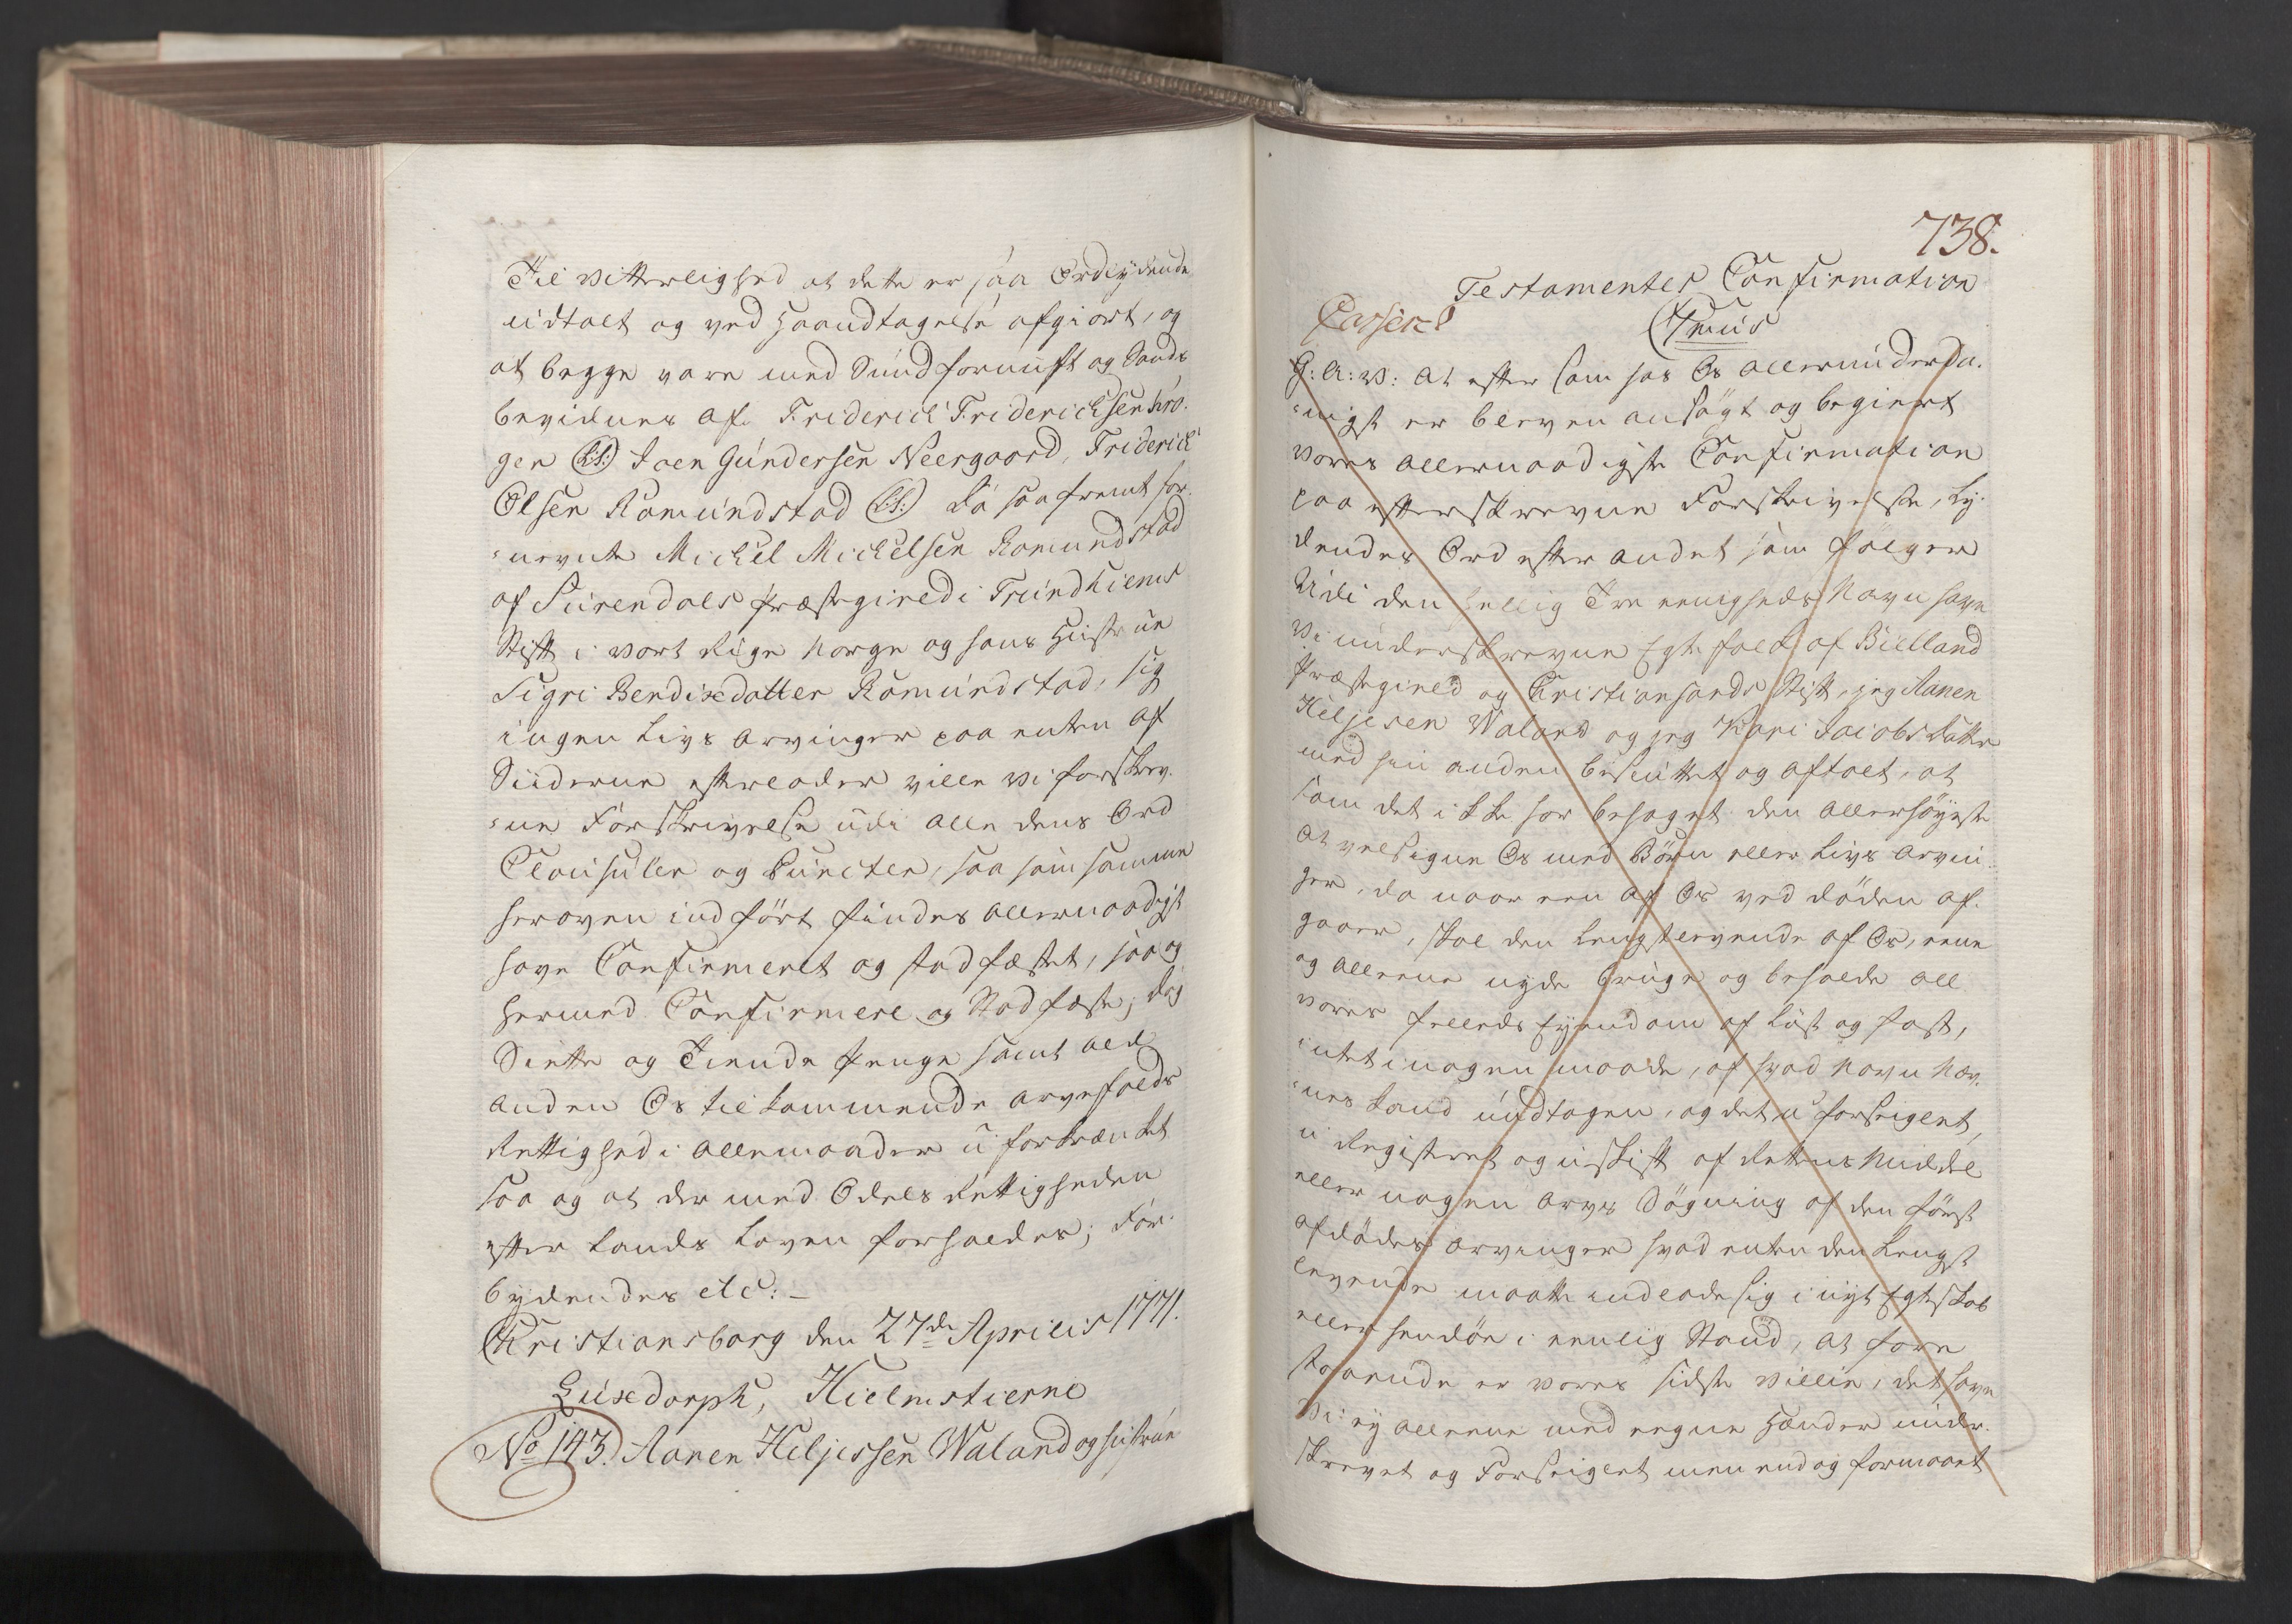 Til Vitterlighed at dette er saa Ordlydende
udtalt og ved Haandtagelse afgiort, og
at begge vare med Sund fornuft og Sands
bevidnes af. Friderich Friderichsen Kro-
gen (L.S.) Joen Gundersen Neergaard, Friderich
Olsen Romundstad (L.S.) Da saafremt for-
nevnte Michel Michelsen Romundstad
af Surendals Præstegield i Trundhiems
Stift i vort Rige Norge og hans Hustrue
Sigri Bendixdatter Romundstad, sig
ingen Livs Arvinger paa enten af
Siiderne efterlader ville Vi forskrev-
ne Forskrivelse udi alle dens Ord
Clausuler og Puncter, saa som samme
heroven indført findes allernaadigst
have Confirmeret og stadfæstet, saa og
hermed Confirmere og Stadfæste; dog
Siette og Tiende Penge samt ald
anden Os tilkommende Arvefalds
Rettighed i allemaader uforkrænket
saa og at der med Odels Rettigheden
efter Lands Loven forholdes; For-
bydendes etc: –
Christiansborg den 27de Aprilis 1771.
Luxdorph, Hielmstierne
No 143. Aanen Heljessen Waland og Hustrue
738.
Testamentes Confirmation
Casseret
Gratis
G: A: V: At eftersom hos Os allerunderda-
nigst er bleven ansøgt og begiert
Vores allernaadigste Confirmation
paa efterskrevne Forskrivelse, Ly-
dendes Ord efter andet som følger
Udi den hellig Tre eenigheds Navn have
Vi underskrevne Egtefolk af Bielland
Præstegield og Christiansands Stift, jeg Aanen
Heljesen Waland og jeg Kari Jacobsdatter
med hin anden besluttet og aftalt, at
som det ikke har behaget den Allerhøyeste
at velsigne Os med Børn eller Livs Arvin-
ger, da naar een af Os ved døden af-
gaaer, skal den Lengstlevende af Os, eene
og alleene nyde bruge og beholde all
vores Fellends Eyendom af Løst og Fast,
intet i nogen maade, af hvad Navn Næv-
nes kand undtagen, og det u forseiglet,
u Registret og u skift af Rettens Middel
eller nogen Arvs Søgning af den først
afdødes Arvinger hvad enten den Lengst
levende maatte indlade sig i nyt Egteskab
eller hendøe i eenlig Stand, At fore
staaende er vores sidste Villie, det have
Vi ey alleene med egne Hænder under-
skrevet og Forseiglet men endog formaaet